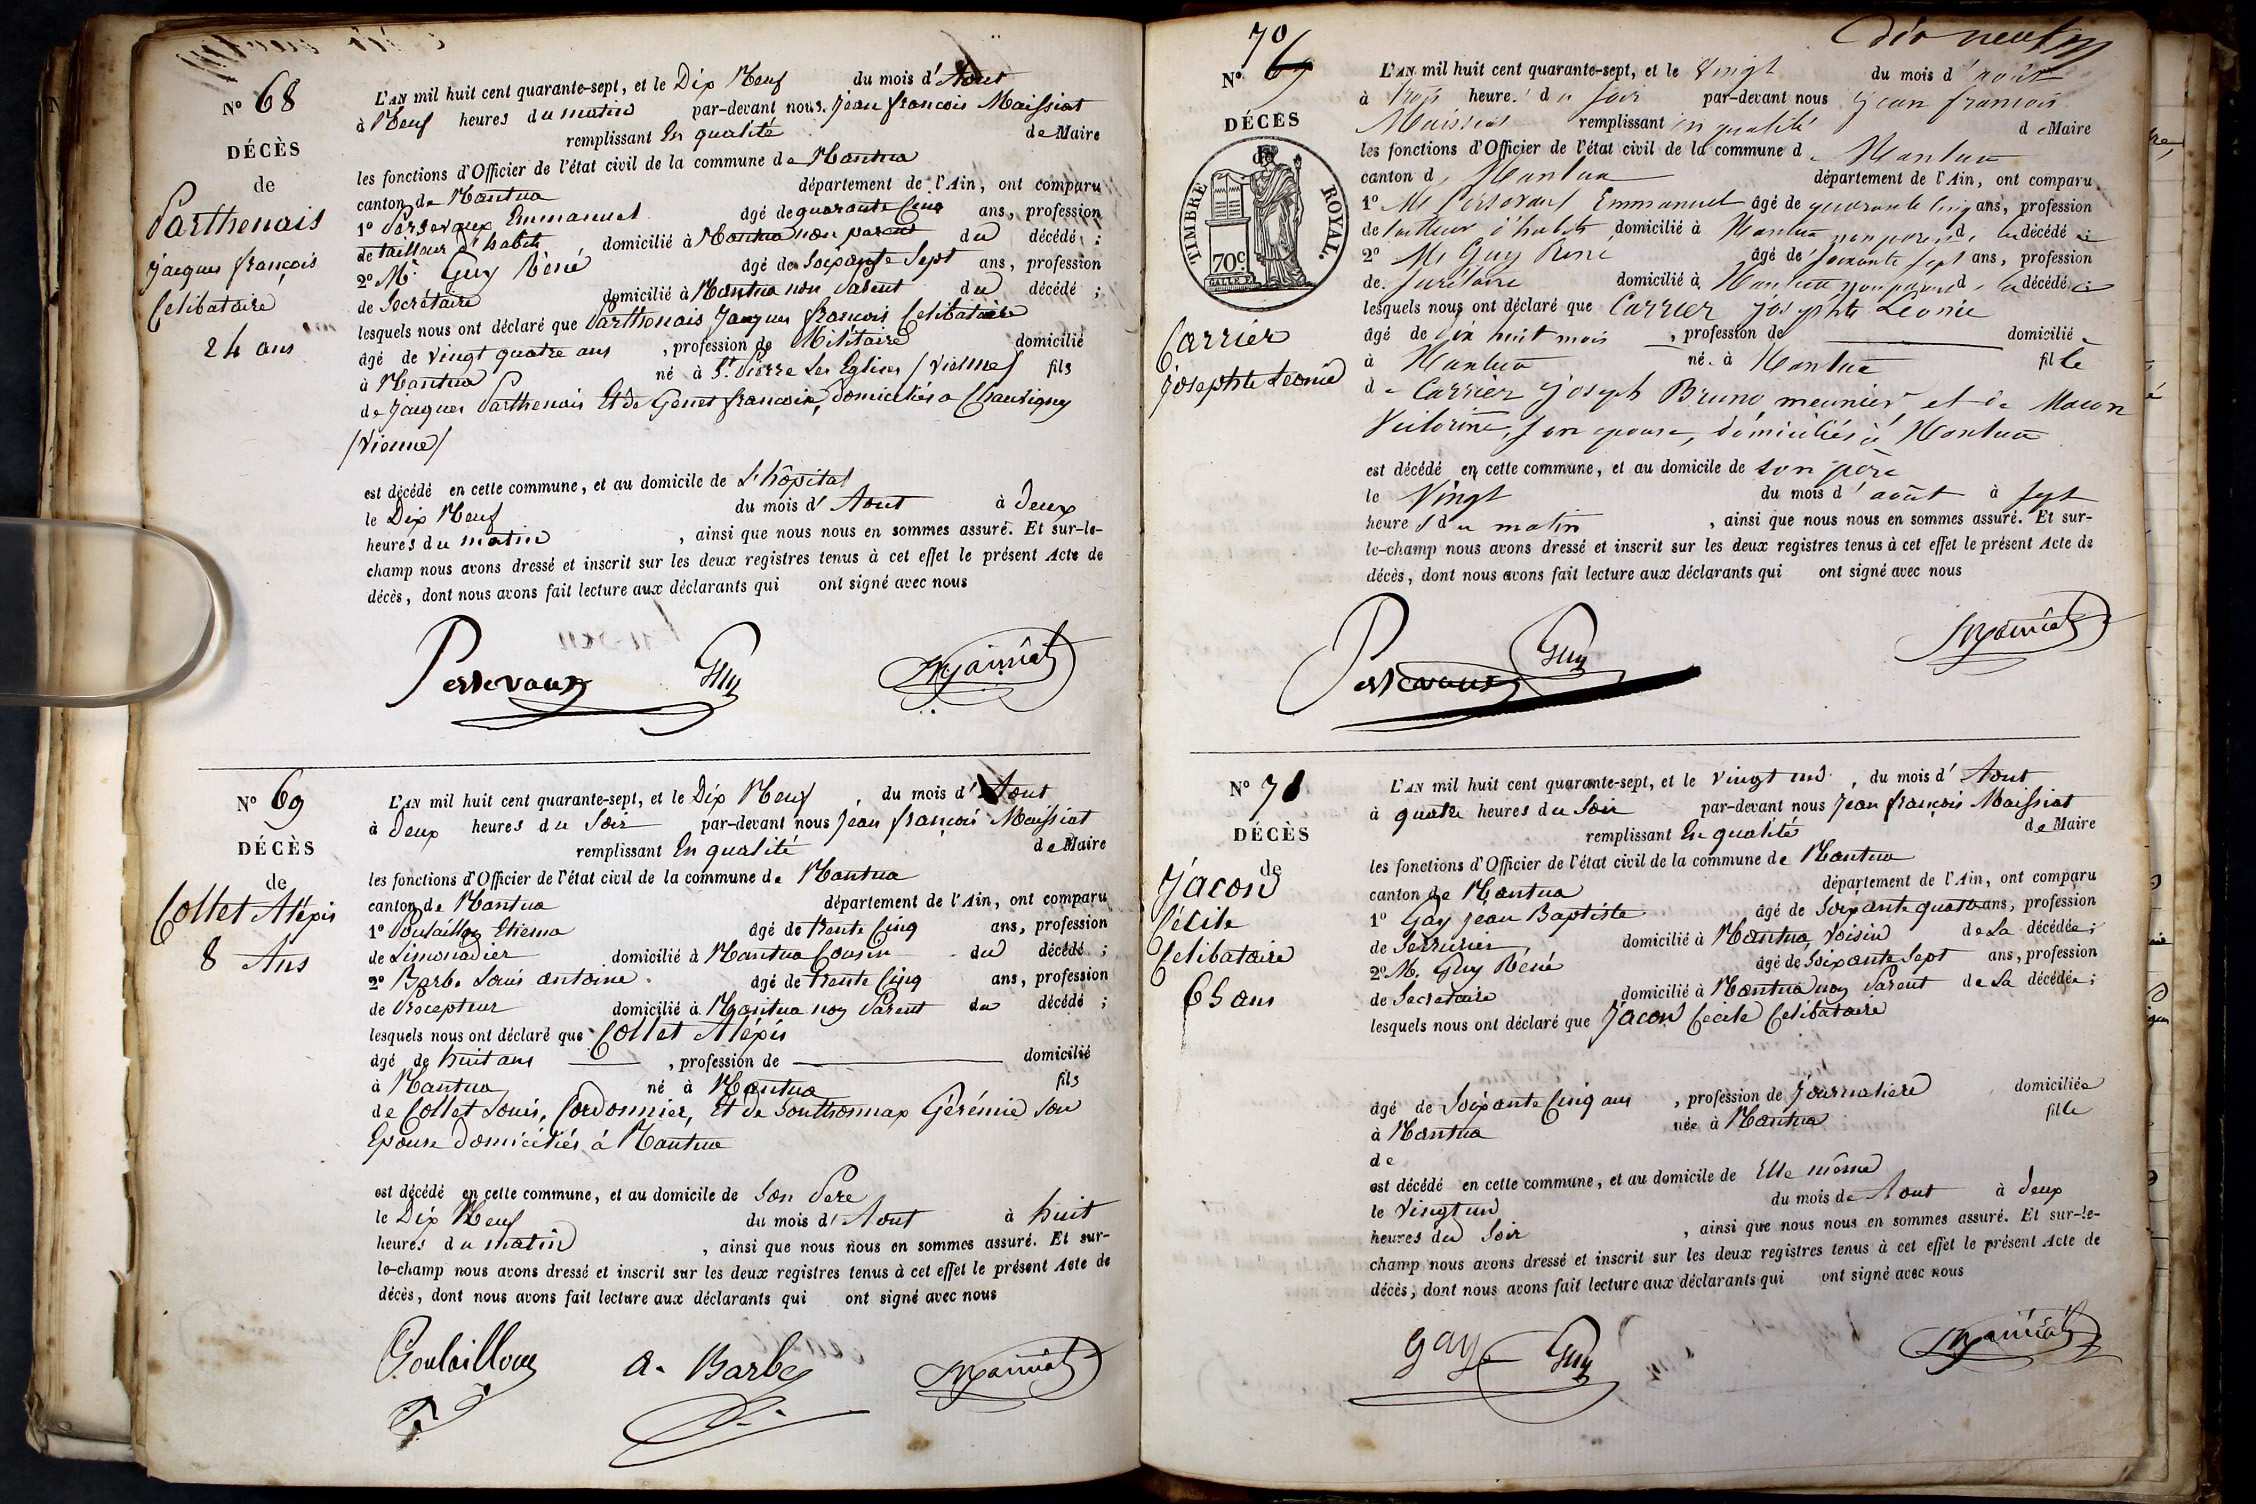 N° 68
DÉCÈS
de
Parthenais
Jacques françois
Celibataire
24 ans
L'AN mil huit cent quarante-sept, et le Dix Neuf du mois d'Aout
à Neuf heures du matin par-devant nous Jean françois Maissiat
remplissant En qualité de Maire
les fonctions d'Officier de l'état civil de la commune de Nantua
canton de Nantua département de l'Ain, ont comparu
1° Persevaux Emmanuel âgé de quarante Cinq ans, profession
de tailleur d'habits, domicilié à Nantua non parent du décédé ;
2° Mr. Guy Réné âgé de Soixante Sept ans, profession
de Secrétaire domicilié à Nantua non Parent du décédé ;
lesquels nous ont déclaré que Parthenais Jacques francois Celibataire
âgé de vingt quatre ans , profession de Militaire domicilié
à Nantua né à St. Pierre Les Eglises (Vienne) fils
de Jacques Parthenais Et de Genet francoise, domiciliés a Chauvigny
(Vienne)
est décédé en cette commune, et au domicile de L'hôpital
le Dix Neuf du mois d'Aout à Deux
heures du matin , ainsi que nous nous en sommes assuré. Et sur-le-
champ nous avons dressé et inscrit sur les deux registres tenus à cet effet le présent Acte de
décès, dont nous avons fait lecture aux déclarants qui ont signé avec nous
Persevaux Guy Maissiat
N° 69
DÉCÈS
de
Collet Aléxis
8 Ans
L'AN mil huit cent quarante-sept, et le Dix Neuf , du mois d'Aout
à Deux heures du Soir par-devant nous Jean françois Maissiat
remplissant En qualité de Maire
les fonctions d'Officier de l'état civil de la commune de Nantua
canton de Nantua département de l'Ain, ont comparu
1° Poulaillon Etienne âgé de trente Cinq ans, profession
de Limonadier domicilié à Nantua Cousin du décédé ;
2° Barbe Louis antoine âgé de trente Cinq ans, profession
de Precepteur domicilié à Nantua non Parent du décédé ;
lesquels nous ont déclaré que Collet Aléxis
âgé de huit ans , profession de domicilié
à Nantua né à Nantua fils
de Collet Louis, Cordonnier, Et de Gérémie Son
Epouse domiciliés à Nantua
est décédé en cette commune, et au domicile de Son Pere
le Dix Neuf du mois d'Aout à huit
heures du matin , ainsi que nous nous en sommes assuré. Et sur-
le-champ nous avons dressé et inscrit sur les deux registres tenus à cet effet le présent Acte de
décès, dont nous avons fait lecture aux déclarants qui ont signé avec nous
Poulaillon a. Barbe Maissiat
70
N°
DÉCÈS
de
TIMBRE ROYAL.
70c.
Carrier
Josephte Leonie
L'AN mil huit cent quarante-sept, et le vingt du mois d'août
à trois heures du soir par-devant nous Jean francois
Maissiat remplissant en qualité de Maire
les fonctions d'Officier de l'état civil de la commune de Nantua
canton de Nantua département de l'Ain, ont comparu
1° Mr Persevaux Emmanuel âgé de quarante cinq ans, profession
de tailleur d'habits domicilié à Nantua non parent de la décédée
2° Mr Guy Réné âgé de soixante sept ans, profession
de secrétaire domicilié à Nantua non parent de la décédée
lesquels nous ont déclaré que Carrier Josephte Leonie
âgé de dix huit mois , profession de domicilié
à Nantua née à Nantua fille
de Carrier Joseph Bruno meunier et de Macon
Victorine, son epouse, domiciliés à Nantua
est décédé en cette commune, et au domicile de son père
le vingt du mois d'août à sept
heures du matin , ainsi que nous nous en sommes assuré. Et sur-
le-champ nous avons dressé et inscrit sur les deux registres tenus à cet effet le présent Acte de
décès, dont nous avons fait lecture aux déclarants qui ont signé avec nous
Persevaux Guy Maissiat
N° 71
DÉCÈS
de
Jacon
Cécile
Celibataire
65 ans
L'AN mil huit cent quarante-sept, et le vingt un , du mois d'Aout
à quatre heures du Soir par-devant nous Jean françois Maissiat
remplissant En qualité de Maire
les fonctions d'Officier de l'état civil de la commune de Nantua
canton de Nantua département de l'Ain, ont comparu
1° Gay Jean Baptiste âgé de Soixante quatre ans, profession
de Serrurier, domicilié à Nantua Voisin de La décédée ;
2° M. Guy Réné âgé de Soixante Sept ans, profession
de Secretaire domicilié à Nantua non Parent de La décédée ;
lesquels nous ont déclaré que Jacon Cecile Celibataire
âgé de Soixante Cinq ans , profession de Journaliere domiciliée
à Nantua née à Nantua fille
de
est décédé en cette commune, et au domicile de Elle même
le Vingt un du mois de Aout à Deux
heures du Soir , ainsi que nous nous en sommes assuré. Et sur-le-
champ nous avons dressé et inscrit sur les deux registres tenus à cet effet le présent Acte de
décès, dont nous avons fait lecture aux déclarants qui ont signé avec nous
Gay Guy Maissiat